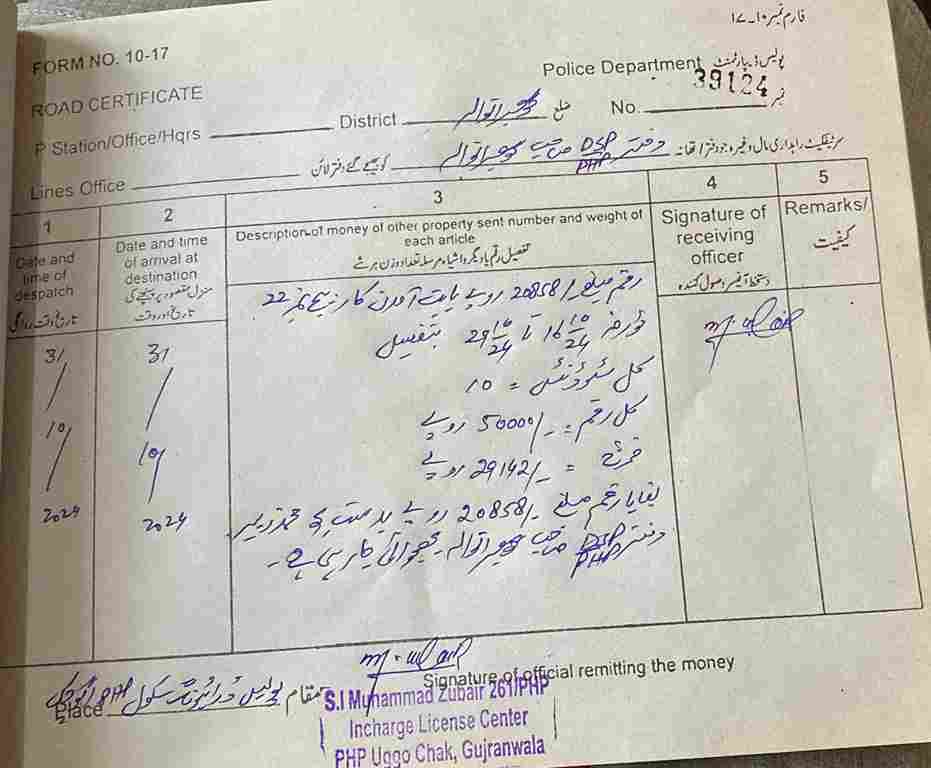 فارم نمبر ۱۰۔۱۷
FORM NO. 10-17
Police Department پولیس ڈیپارٹمنٹ
ROAD CERTIFICATE
39124
P Station/Office/Hqrs District گوجرانوالہ ضلع No. نمبر
Lines Office کو بھیجے گئے دفتر لائن گوجرانوالہ صاحب DSP PHP دفتر سرٹیفکیٹ راہداری مال وغیرہ جو دفتر / تھانہ
1 2 3 4 5
Date and time of despatch
تاریخ و وقت روانگی
Date and time of arrival at destination
منزل مقصود پر پہنچنے کی تاریخ اور وقت
Description of money of other property sent number and weight of each article
تفصیل رقم یا دیگر اشیاء مرسلہ تعداد وزن ہر شے
Signature of receiving officer
دستخط آفیسر وصول کنندہ
Remarks/
کیفیت
31/10/2024
31/10/2024
رقم مبلغ 20858/- روپے بابت آمدن کار نمبر 22
مورخہ 16 10/24 تا 29 10/24 بتفصیل
کل سٹوڈنٹس = 10
کل رقم = 50000/- روپے
خرچ = 29142/- روپے
بقایا رقم مبلغ 20858/- روپے بدست محمد زبیر
دفتر DSP PHP صاحب گوجرانوالہ بھجوائی جا رہی ہے۔
Signature of official remitting the money
Place مقام پولیس ڈرائیونگ سکول PHP
S.I Muhammad Zubair 261/PHP
Incharge License Center
PHP Uggo Chak, Gujranwala